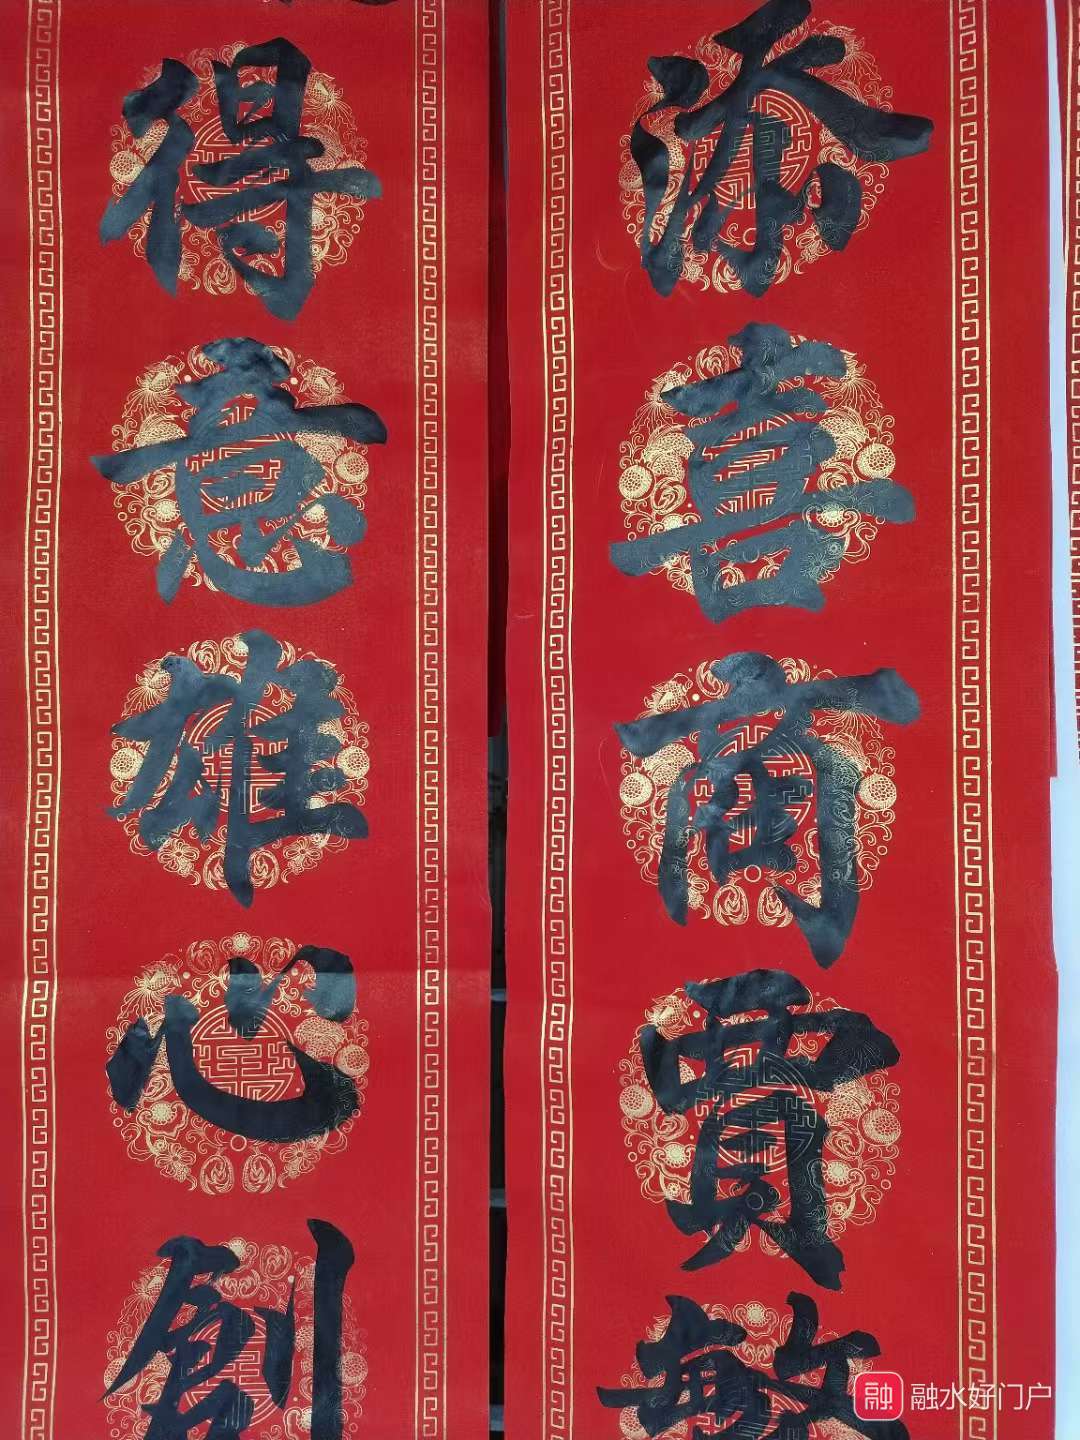 添喜商賈
得意雄心創
融 融水好门户